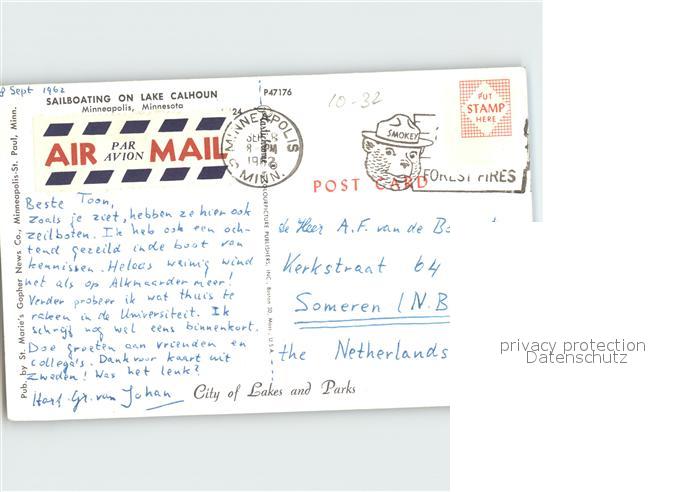 8 Sept 1962
SAILBOATING ON LAKE CALHOUN
Minneapolis, Minnesota
P47176
10-32
AIR PAR AVION MAIL
MINNEAPOLIS
SEP 8
PM
1962
MINN.
SMOKEY
FOREST FIRES
PUT
STAMP
HERE
POST CARD
Pub. by St. Marie's Gopher News Co., Minneapolis-St. Paul, Minn.
Beste Toon,
Zoals je ziet, hebben ze hier ook
zeilboten. Ik heb ook een och-
tend gezeild in de boot van
kennissen. Helaas weinig wind
net als op Alkmaardermeer!
Verder probeer ik wat thuis te
raken in de Universiteit. Ik
schrijf nog wel eens binnenkort.
Doe groeten aan vrienden en
collega's. Dank voor kaart uit
Zweden! Was het leuk?
Hart. Gr. van Johan
de Heer A.F. van de
Kerkstraat 64
Someren (N.B
the Netherlands
City of Lakes and Parks
privacy protection
Datenschutz